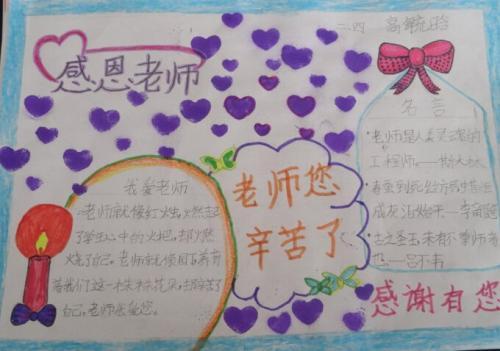 二、四
感恩老师
名言
老师是人类灵魂的
工程师。——斯大林
春蚕到死丝方尽
成灰泪始干——李商隐
古之圣王，未有不尊师者
也——吕不韦
我爱老师
老师就像红烛，燃起
了学生心中的火把，却燃
烧了自己。老师就像园丁
着我们这一株株花朵，却
自己。老师我爱您。
老师您
辛苦了
感谢有您